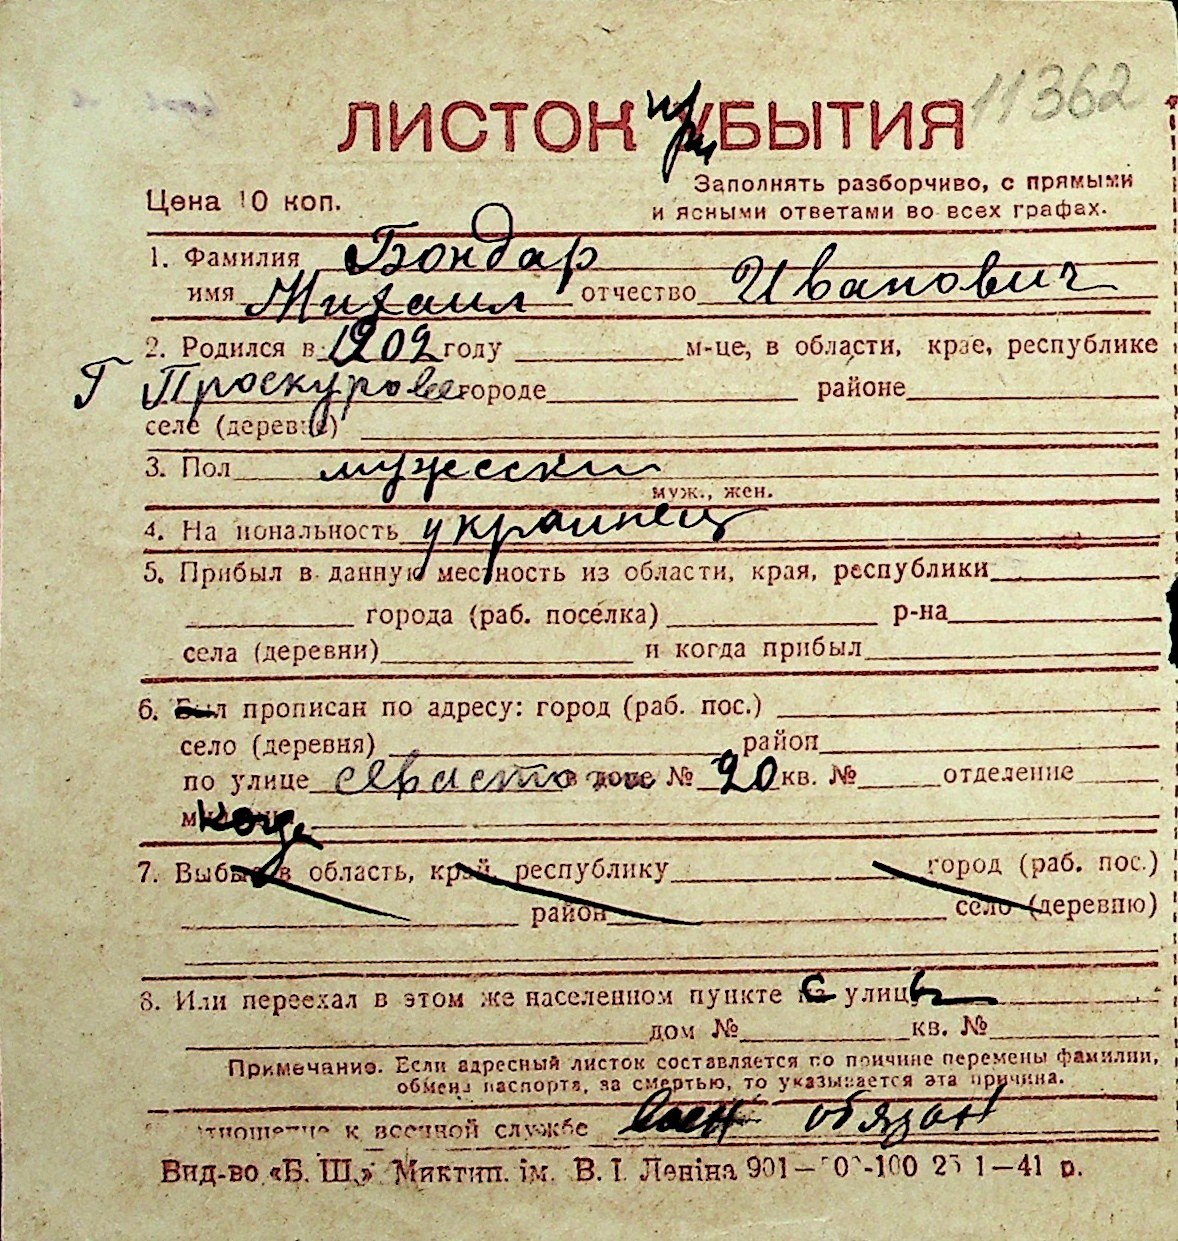 11362
ЛИСТОК при УБЫТИЯ
Цена 10 коп.
Заполнять разборчиво, с прямыми
и ясными ответами во всех графах.
1. Фамилия Бондар
имя Михаил отчество Иванович
2. Родился в 1909 году м-це, в области, крае, республике
Г Проскурове городе районе
селе (деревне)
3. Пол мужески
муж., жен.
4. На иональность украинец
5. Прибыл в данную местность из области, края, республики
города (раб. поселка) р-на
села (деревни) и когда прибыл
6. Был прописан по адресу: город (раб. пос.)
село (деревня) район
по улице в доме № 20 кв. № отделение
Когда
7. Выбыл в область, край, республику город (раб. пос.)
район село (деревню)
8. Или переехал в этом же населенном пункте с улицы
дом № кв. №
Примечание. Если адресный листок составляется по причине перемены фамилии,
обмена паспорта, за смертью, то указывается эта причина.
отношение к военной службе воен обязан
Вид-во «Б. Ш.» Миктип. ім. В. І. Леніна 901— -100 25 1—41 р.